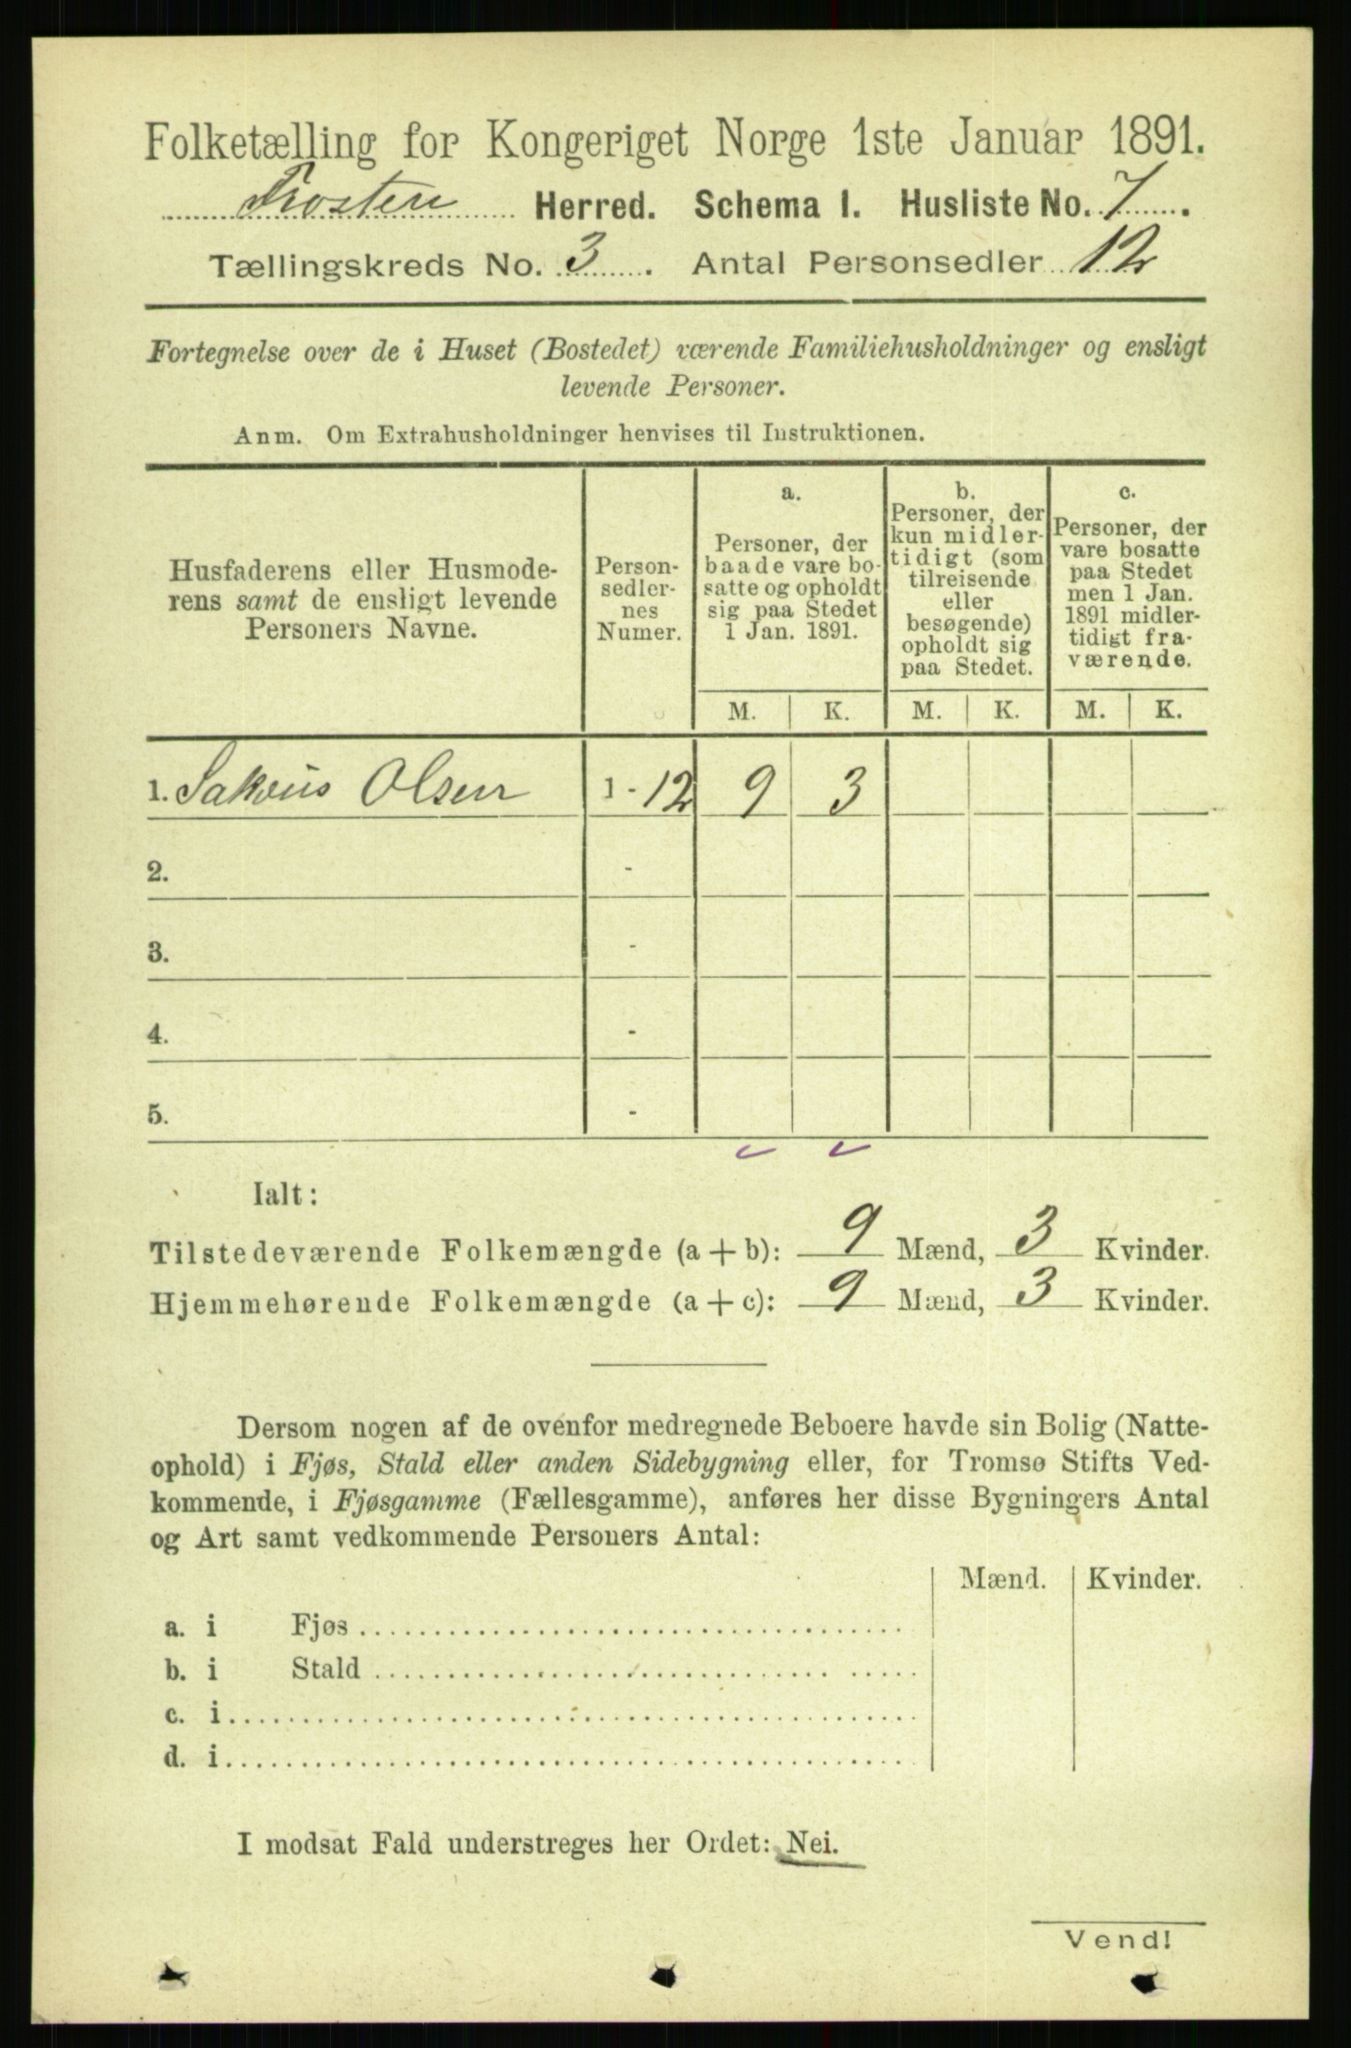 Folketælling for Kongeriget Norge 1ste Januar 1891.
Frosten Herred. Schema I. Husliste No. 7.
Tællingskreds No. 3. Antal Personsedler 12
Fortegnelse over de i Huset (Bostedet) værende Familiehusholdninger og ensligt
levende Personer.
Anm. Om Extrahusholdninger henvises til Instruktionen.
Husfaderens eller Husmode-
rens samt de ensligt levende
Personers Navne.
Person-
sedler-
nes
Numer.
a.
Personer, der
baade vare bo-
satte og opholdt
sig paa Stedet
1 Jan. 1891.
b.
Personer, der
kun midler-
tidigt (som
tilreisende
eller
besøgende)
opholdt sig
paa Stedet.
c.
Personer, der
vare bosatte
paa Stedet
men 1 Jan.
1891 midler-
tidigt fra-
værende.
M. K. M. K. M. K.
1. Olsen 1 - 12 9 3
2. -
3. -
4. -
5. -
Ialt:
Tilstedeværende Folkemængde (a + b): 9 Mænd, 3 Kvinder.
Hjemmehørende Folkemængde (a + c): 9 Mænd, 3 Kvinder.
Dersom nogen af de ovenfor medregnede Beboere havde sin Bolig (Natte-
ophold) i Fjøs, Stald eller anden Sidebygning eller, for Tromsø Stifts Ved-
kommende, i Fjøsgamme (Fællesgamme), anføres her disse Bygningers Antal
og Art samt vedkommende Personers Antal:
Mænd. Kvinder.
a. i Fjøs
b. i Stald
c. i
d. i
I modsat Fald understreges her Ordet: Nei.
Vend!